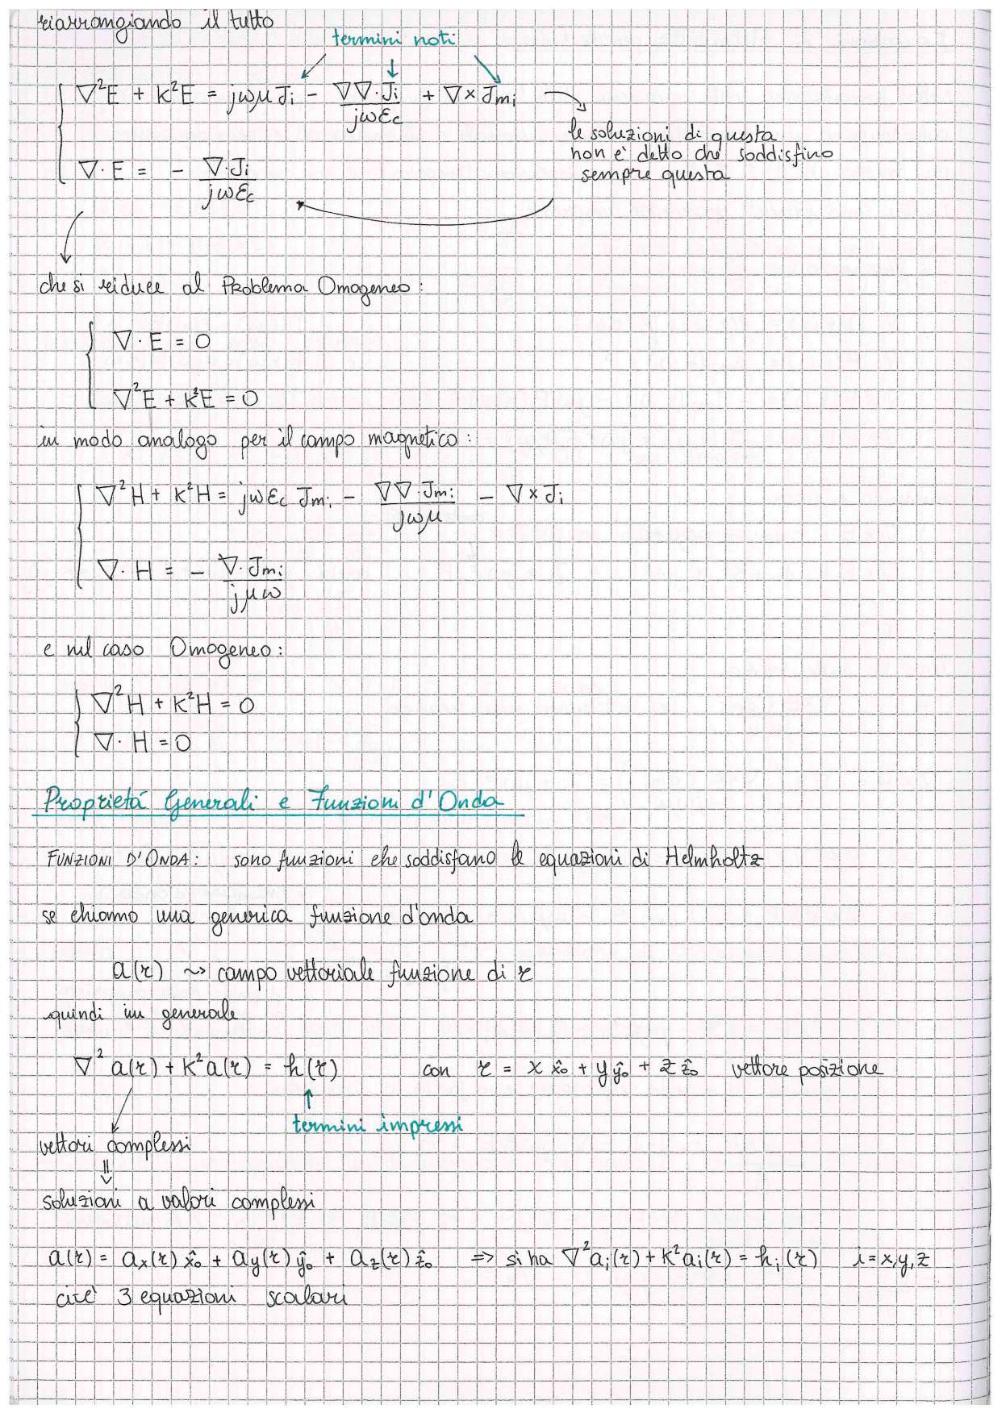 riarrangiando il tutto
termini noti
∇²E + K²E = jωμJi − ∇∇·Ji/jωεc + ∇×Jmi
le soluzioni di questa
non e' detto che soddisfino
sempre questa
∇·E = − ∇·Ji/jωεc
che si riduce al Problema Omogeneo:
∇·E = 0
∇²E + K²E = 0
in modo analogo per il campo magnetico:
∇²H + K²H = jωεc Jmi − ∇∇·Jmi/jωμ − ∇×Ji
∇·H = − ∇·Jmi/jμω
e nel caso Omogeneo:
∇²H + K²H = 0
∇·H = 0
Proprietá Generali e Funzioni d'Onda
FUNZIONI D'ONDA: sono funzioni che soddisfano le equazioni di Helmholtz
se chiamo una generica funzione d'onda
a(r) ~> campo vettoriale funzione di r
quindi in generale
∇²a(r) + K²a(r) = h(r) con r = x x̂o + y ŷo + z ẑo vettore posizione
termini impressi
vettori complessi
⇓
soluzioni a valori complessi
a(r) = ax(r) x̂o + ay(r) ŷo + az(r) ẑo => si ha ∇²ai(r) + K²ai(r) = hi(r) i = x,y,z
cioe' 3 equazioni scalari